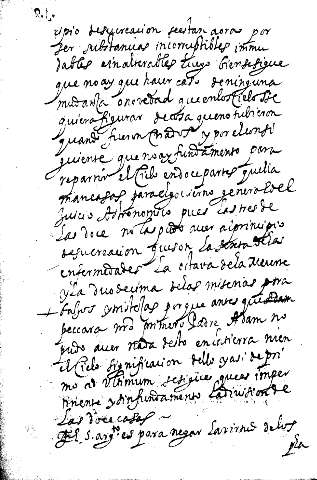 cipio desu creacion se estan aora por
ser substancias incorruptibles immu
dables e inalterables luego bien se sigue
que no ay que hacer caso de ninguna
mudanza o novedad que en los Cielos se
quiera figurar de cosa que no tubieron
quando fueron criados y por el consi
guiente que no ay fundamento para
repartir el Cielo en doce partes que lla
man casas para el govierno general del
Juicio Astronomico pues las tres de
las doce no las pudo aver al principio
de su creacion que son la sexta de las
enfermedades La octava de la Muerte
y La duodecima de las miserias
y porque antes que
peccara nro primero Padre Adam no
pudo aver nada desto en la tierra ni en
el Cielo significacion dello y asi de pri
mo ad Ultimum se sigue que es imper
tinente y sin fundamento la division de
Las doce casas
El 5. argto es para negar la virtud de los